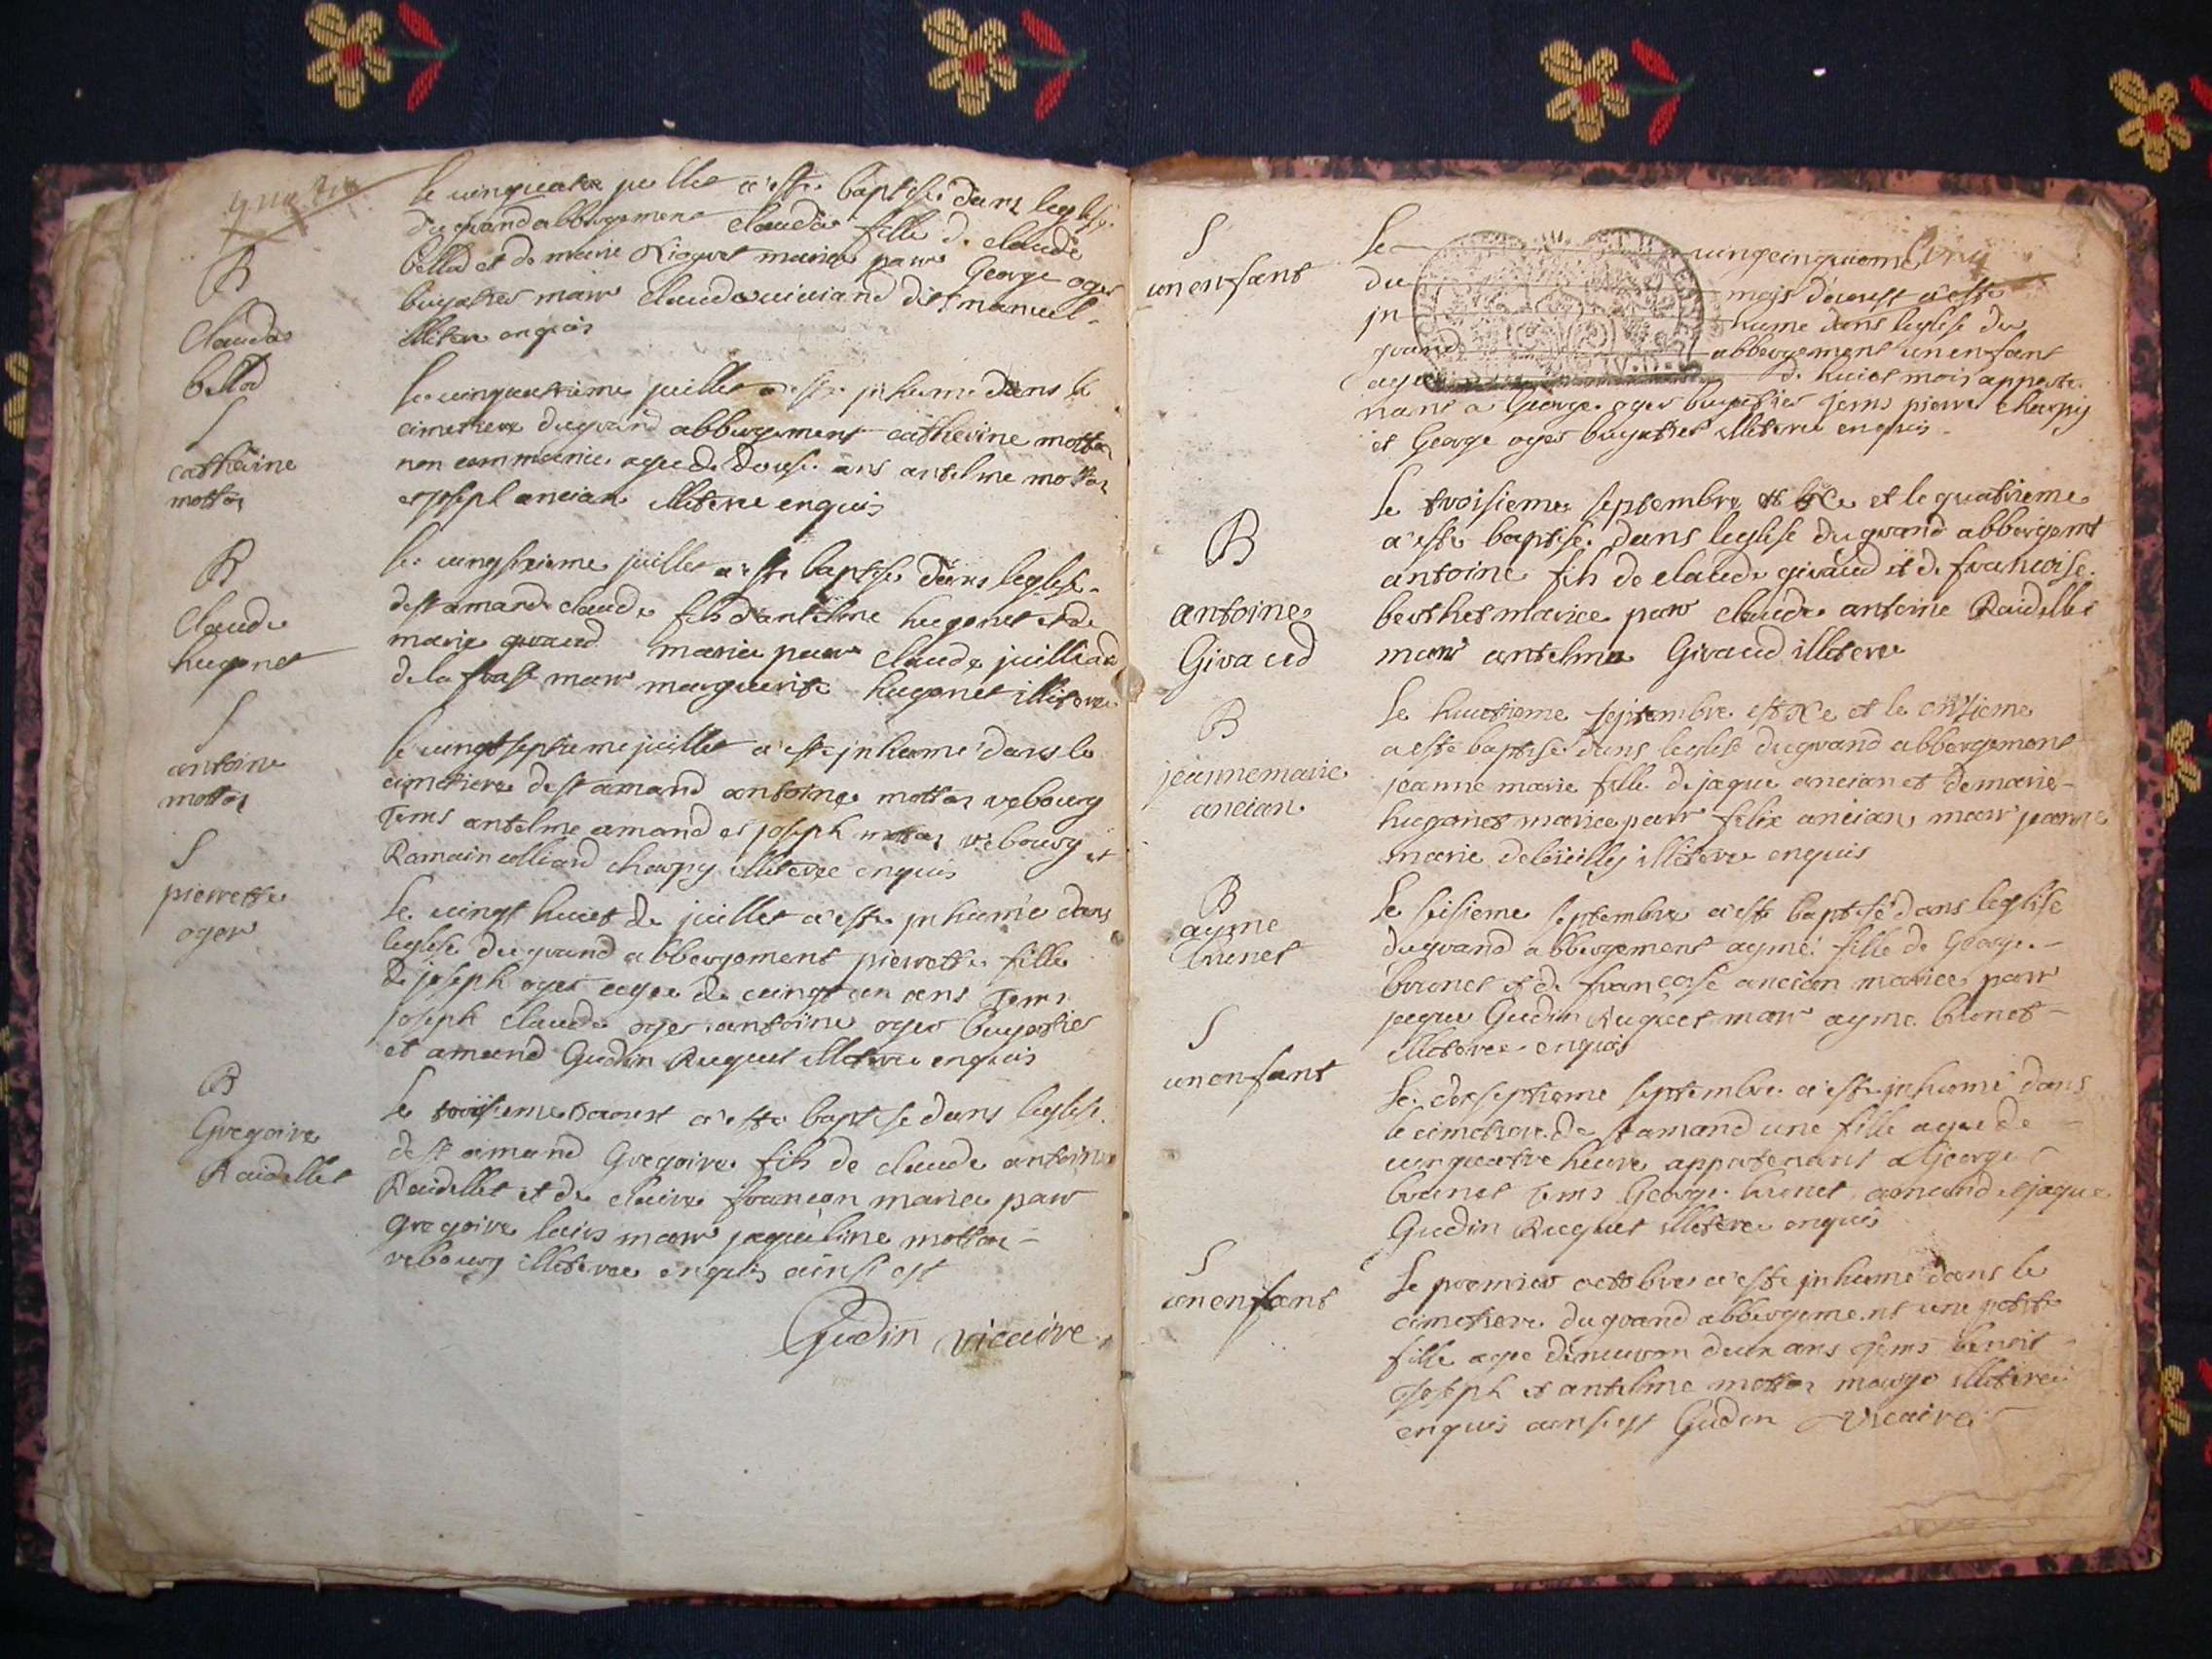 quatre
B
Claudas
bellod
le vingquatre juillet a esté baptisé dans leglise
du grand abbergement claudas fille de claude
bellod et de marie mariés parr George oger
buyatier marr Claudas viviand dit manuel
illitere enquis
S
catherine
mottaz
le vingquatrieme juillet a esté jnhumé dans le
cimetiere du grand abbergement catherine mottaz
non communiée agée de douse ans antelme mottaz
et joseph ancian illitere enquis
B
Claude
hugonet
le vingsixieme juillet a esté baptisé dans leglise
de st amand claude fils d'antelme hugonet et de
marie giraud mariés parr claude juilliard
de la marr marguerite hugonet illitere
S
antoine
mottaz
le vingt septieme juillet a esté jnhumé dans le
cimetiere de st amand antoine mottaz rebourg
tems antelme amand et joseph mottaz rebourg et
Romain colliard charpy illitere enquis
S
pierrette
oger
le vingt huict de juillet a esté jnhumé dans
leglise du grand abbergement pierrette fille
de joseph oger agée de vingt un ans tems
joseph claude oger antoine oger buyatier
et amand Gudin Ruquet illitere enquis
B
Gregoire
Raidellet
le troisieme daoust a esté baptisé dans leglise
de st amand Gregoire fils de claude antoine
Raidellet et de claire françon mariés parr
gregoire lair marr jaqueline mottaz
rebourg illiteree enquis ainsi est
Gudin vicaire
S
un enfant
le vingcinquieme
du mois daoust a esté
jn humé dans leglise du
grand abbergement un enfant
agé de huict mois apparte
nant a George oger buyatier tems pierre charpy
et George oger buyatier illitere enquis
B
antoine
Giraud
le troisieme septembre est né et le quatrieme
a esté baptisé dans leglise du grand abbergemt
antoine fils de claude giraud et de francoise
berthet mariée parr claude antoine Raidellet
marr antelma Giraud illitere
B
jeanne marie
ancian
le huictieme septembre est né et le onzieme
a esté baptisé dans leglise du grand abbergement
jeanne marie fille de jaque ancian et de marie
hugonet mariee parr felix ancian marr jeanne
marie illitere enquis
B
aymé
brunet
le seisieme septembre a esté baptisé dans leglise
du grand abbergement aymé fille de George
brunet et de françoise ancian mariee parr
jaque Gudin Ruquet marr ayme brunet
illiteree enquis
S
un enfant
le dixseptieme septembre a esté jnhumé dans
le cimetiere de st amand une fille agée de
vingquatre heure appartenant a George
brunet tems George brunet amand et jaque
Gudin Ruquet illitere enquis
S
un enfant
le premier octobre a esté jnhumé dans le
cimetiere du grand abbergement une petite
fille agée denviron deux ans tems benoit
joseph et antelme mottaz illitere
enquis ainsi est Gudin vicaire